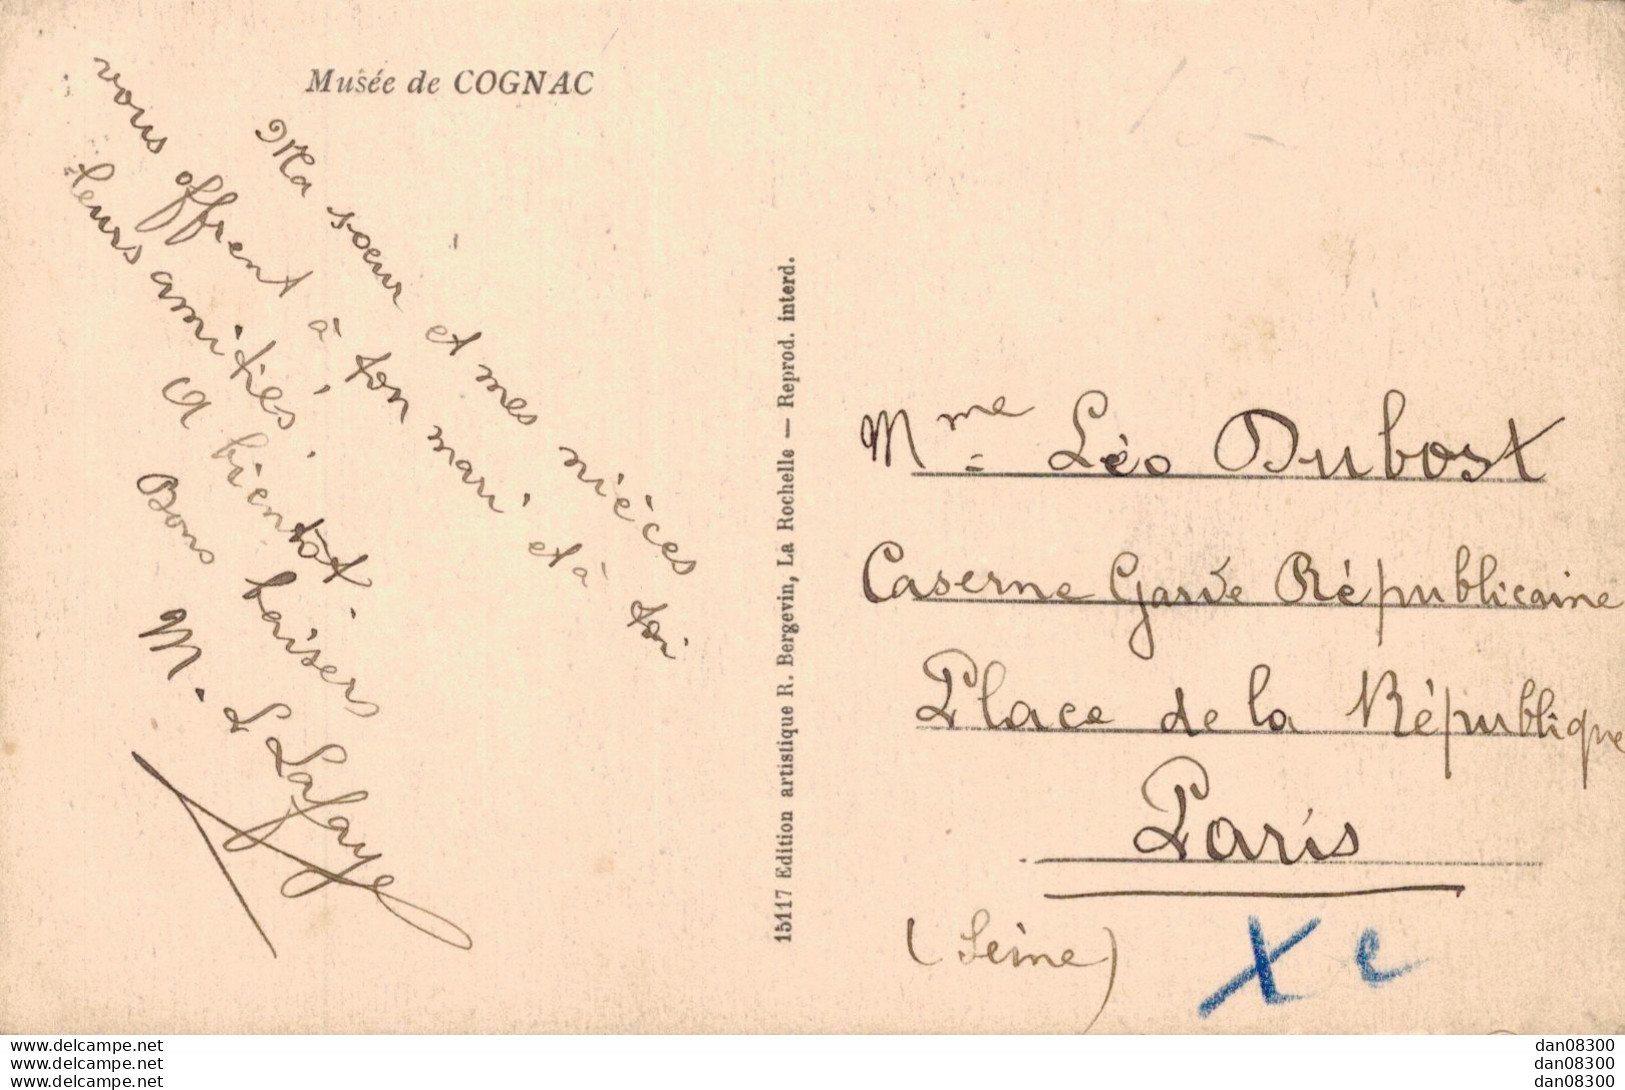 Musée de COGNAC
Ma sœur et mes nièces
vous offrent à ton mari et à toi
leurs amitiés.
A bientôt.
Bons baisers
M. L Lafaye
15117 Edition artistique R. Bergevin, La Rochelle — Reprod. interd.
Mme Léo Dubost
Caserne Garde Républicaine
Place de la République
Paris
(Seine)
Xe
www.delcampe.net
www.delcampe.net
www.delcampe.net
dan08300
dan08300
dan08300